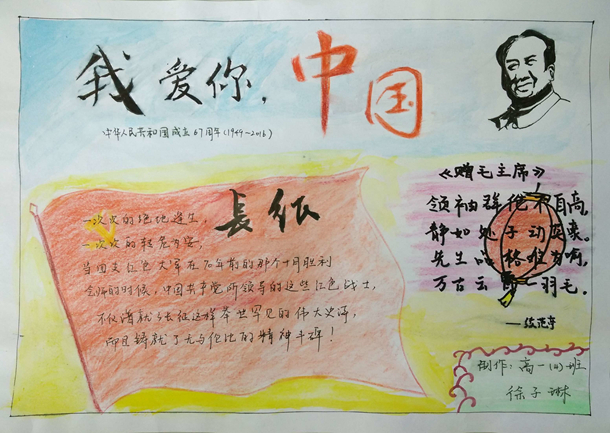 我爱你,中国
中华人民共和国成立67周年(1949~2016)
長征
一次次的绝地逢生,
一次次的转危为安,
当四支红色大军在70年前的那个十月胜利
会师的时候,中国共产党所领导的这些红色战士,
不仅谱就了长征这样举世罕见的伟大史诗,
而且铸就了无与伦比的精神丰碑!
《赠毛主席》
领袖群伦不自高,
静如处子动英豪。
先生品格难为喻,
万古云霄一羽毛。
——续范亭
制作:高一班
徐子琳